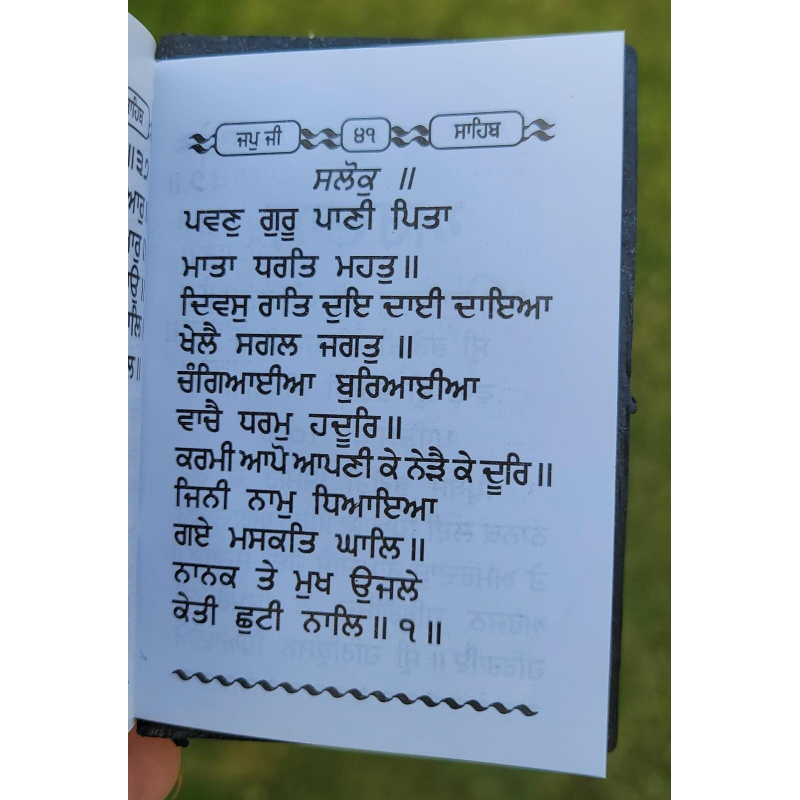 ਜਪੁ ਜੀ ੪੧ ਸਾਹਿਬ
ਸਲੋਕੁ ॥
ਪਵਣੁ ਗੁਰੂ ਪਾਣੀ ਪਿਤਾ
ਮਾਤਾ ਧਰਤਿ ਮਹਤੁ॥
ਦਿਵਸੁ ਰਾਤਿ ਦੁਇ ਦਾਈ ਦਾਇਆ
ਖੇਲੈ ਸਗਲ ਜਗਤੁ ॥
ਚੰਗਿਆਈਆ ਬੁਰਿਆਈਆ
ਵਾਚੈ ਧਰਮੁ ਹਦੂਰਿ॥
ਕਰਮੀ ਆਪੋ ਆਪਣੀ ਕੇ ਨੇੜੈ ਕੇ ਦੂਰਿ॥
ਜਿਨੀ ਨਾਮੁ ਧਿਆਇਆ
ਗਏ ਮਸਕਤਿ ਘਾਲਿ॥
ਨਾਨਕ ਤੇ ਮੁਖ ਉਜਲੇ
ਕੇਤੀ ਛੁਟੀ ਨਾਲਿ॥ ੧॥